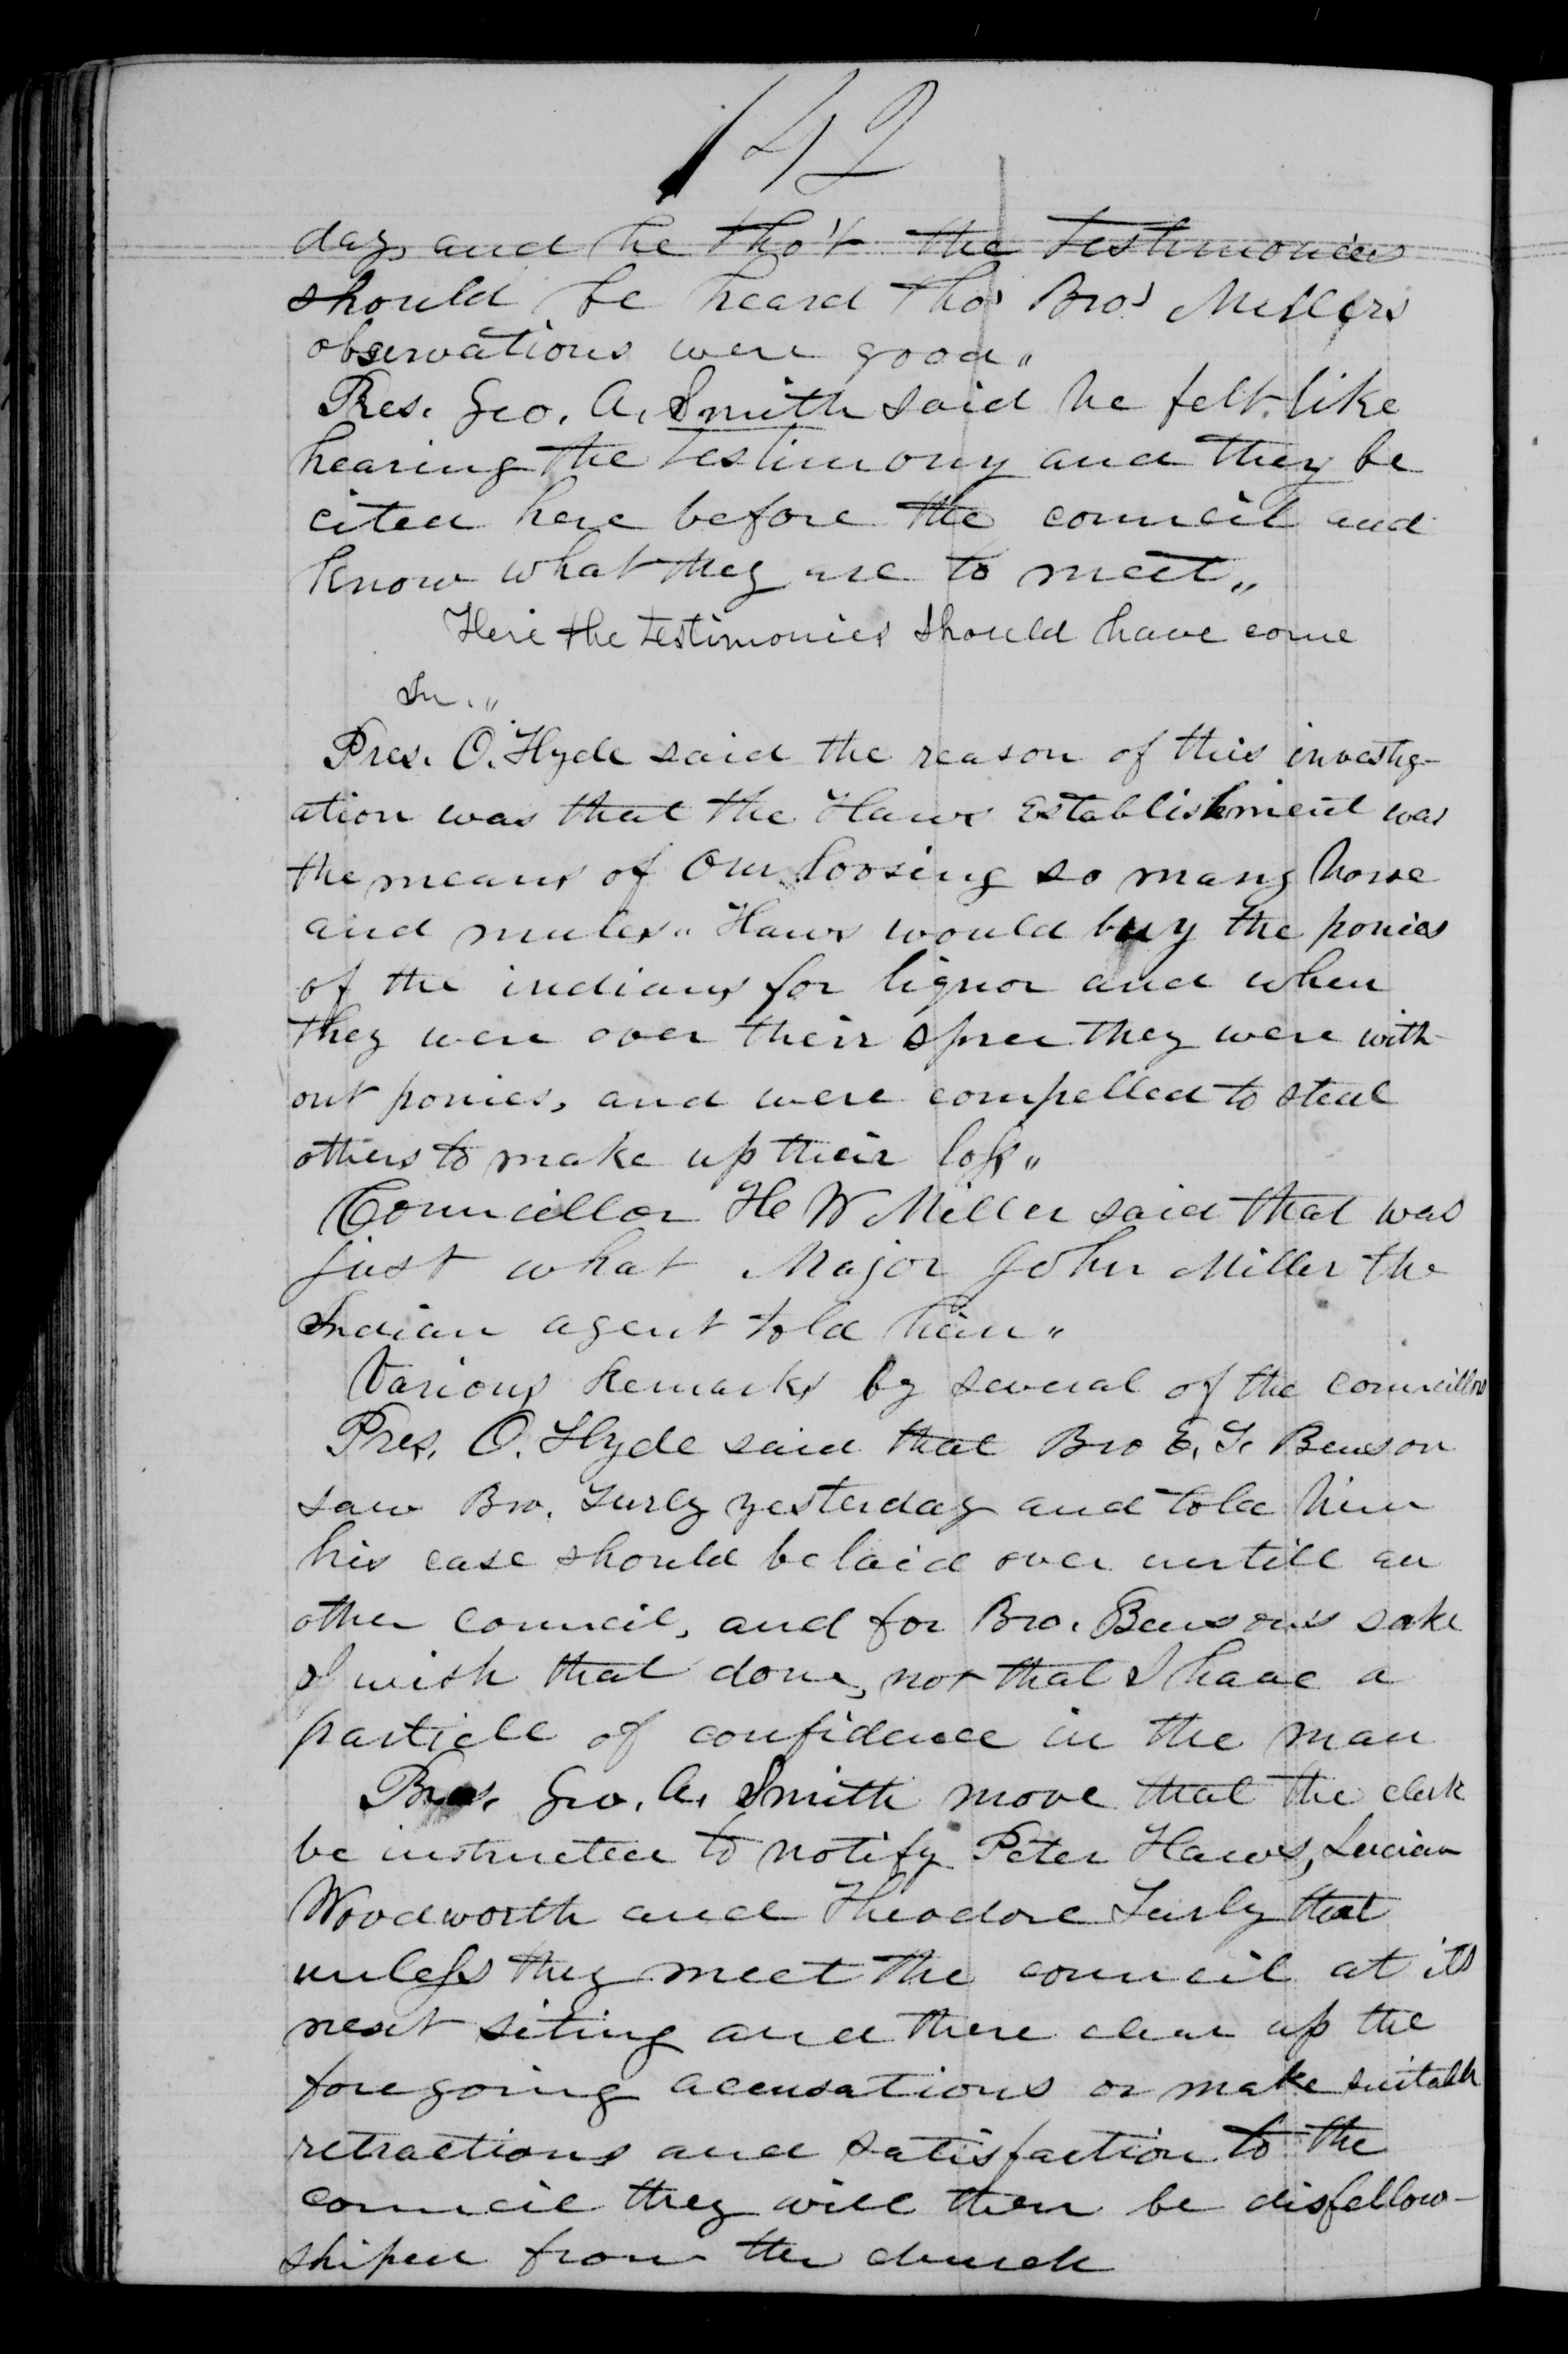 142
day, and he tho't the testimonies
should be heard tho' Bro' Millers
observations were good"
Pres. Geo. A. Smith said he felt like
hearing the testimony and they be
cited here before the council and
know what they are to meet"
Here the testimonies should have come
In."
Pres. O. Hyde said the reason of this investig-
ation was that the Haws Establishment was
the means of Our loosing so many horse
and mules" Haws would buy the ponies
of the indians for liquor and when
they were over their spree they were with-
out ponies, and were compelled to steal
others to make up their loss"
Councillor H W Miller said that was
just what Major John Miller the
Indian agent told him"
Various Remarks by several of the councillors
Pres. O. Hyde said that Bro E. T. Benson
saw Bro. Turly yesterday and told him
his case should be laid over untill an
other council, and for Bro. Benson's sake
I wish that done, not that I have a
particle of confidence in the man
Pres. Geo. A. Smith move that the clerk
be instructed to notify Peter Haws, Lucian
Woodworth and Theodore Turly that
unless they meet the council at its
next siting and there clear up the
foregoing accusations or make suitable
retractions and satisfaction to the
council they will then be disfellow-
shiped from the church